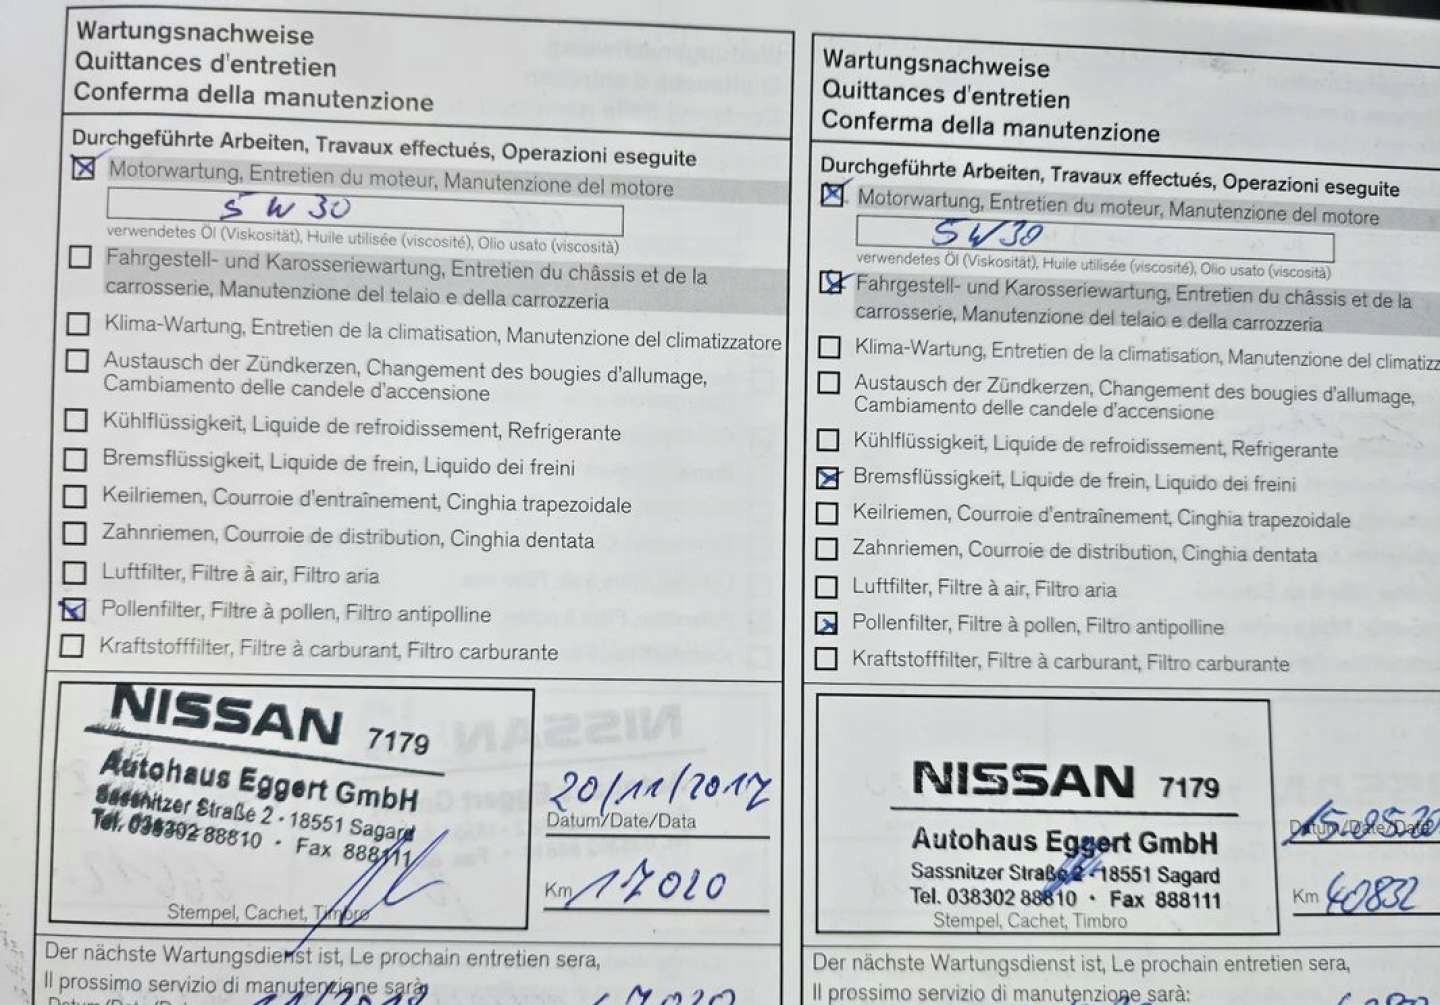 Wartungsnachweise
Quittances d'entretien
Conferma della manutenzione
Durchgeführte Arbeiten, Travaux effectués, Operazioni eseguite
Motorwartung, Entretien du moteur, Manutenzione del motore
5 W 30
verwendetes Öl (Viskosität), Huile utilisée (viscosité), Olio usato (viscosità)
Fahrgestell- und Karosseriewartung, Entretien du châssis et de la
carrosserie, Manutenzione del telaio e della carrozzeria
Klima-Wartung, Entretien de la climatisation, Manutenzione del climatizzatore
Austausch der Zündkerzen, Changement des bougies d'allumage,
Cambiamento delle candele d'accensione
Kühlflüssigkeit, Liquide de refroidissement, Refrigerante
Bremsflüssigkeit, Liquide de frein, Liquido dei freini
Keilriemen, Courroie d'entraînement, Cinghia trapezoidale
Zahnriemen, Courroie de distribution, Cinghia dentata
Luftfilter, Filtre à air, Filtro aria
Pollenfilter, Filtre à pollen, Filtro antipolline
Kraftstofffilter, Filtre à carburant, Filtro carburante
NISSAN 7179
Autohaus Eggert GmbH
Sassnitzer Straße 2 · 18551 Sagard
Tel. 038302 88810 · Fax 888111
Stempel, Cachet, Timbro
20/11/2017
Datum/Date/Data
Km 17020
Der nächste Wartungsdienst ist, Le prochain entretien sera,
Il prossimo servizio di manutenzione sarà:
11/2018
Wartungsnachweise
Quittances d'entretien
Conferma della manutenzione
Durchgeführte Arbeiten, Travaux effectués, Operazioni eseguite
Motorwartung, Entretien du moteur, Manutenzione del motore
5W30
verwendetes Öl (Viskosität), Huile utilisée (viscosité), Olio usato (viscosità)
Fahrgestell- und Karosseriewartung, Entretien du châssis et de la
carrosserie, Manutenzione del telaio e della carrozzeria
Klima-Wartung, Entretien de la climatisation, Manutenzione del climatizz
Austausch der Zündkerzen, Changement des bougies d'allumage,
Cambiamento delle candele d'accensione
Kühlflüssigkeit, Liquide de refroidissement, Refrigerante
Bremsflüssigkeit, Liquide de frein, Liquido dei freini
Keilriemen, Courroie d'entraînement, Cinghia trapezoidale
Zahnriemen, Courroie de distribution, Cinghia dentata
Luftfilter, Filtre à air, Filtro aria
Pollenfilter, Filtre à pollen, Filtro antipolline
Kraftstofffilter, Filtre à carburant, Filtro carburante
NISSAN 7179
Autohaus Eggert GmbH
Sassnitzer Straße 2 · 18551 Sagard
Tel. 038302 88810 · Fax 888111
Stempel, Cachet, Timbro
Datum/Date/Data
Km 40832
Der nächste Wartungsdienst ist, Le prochain entretien sera,
Il prossimo servizio di manutenzione sarà: